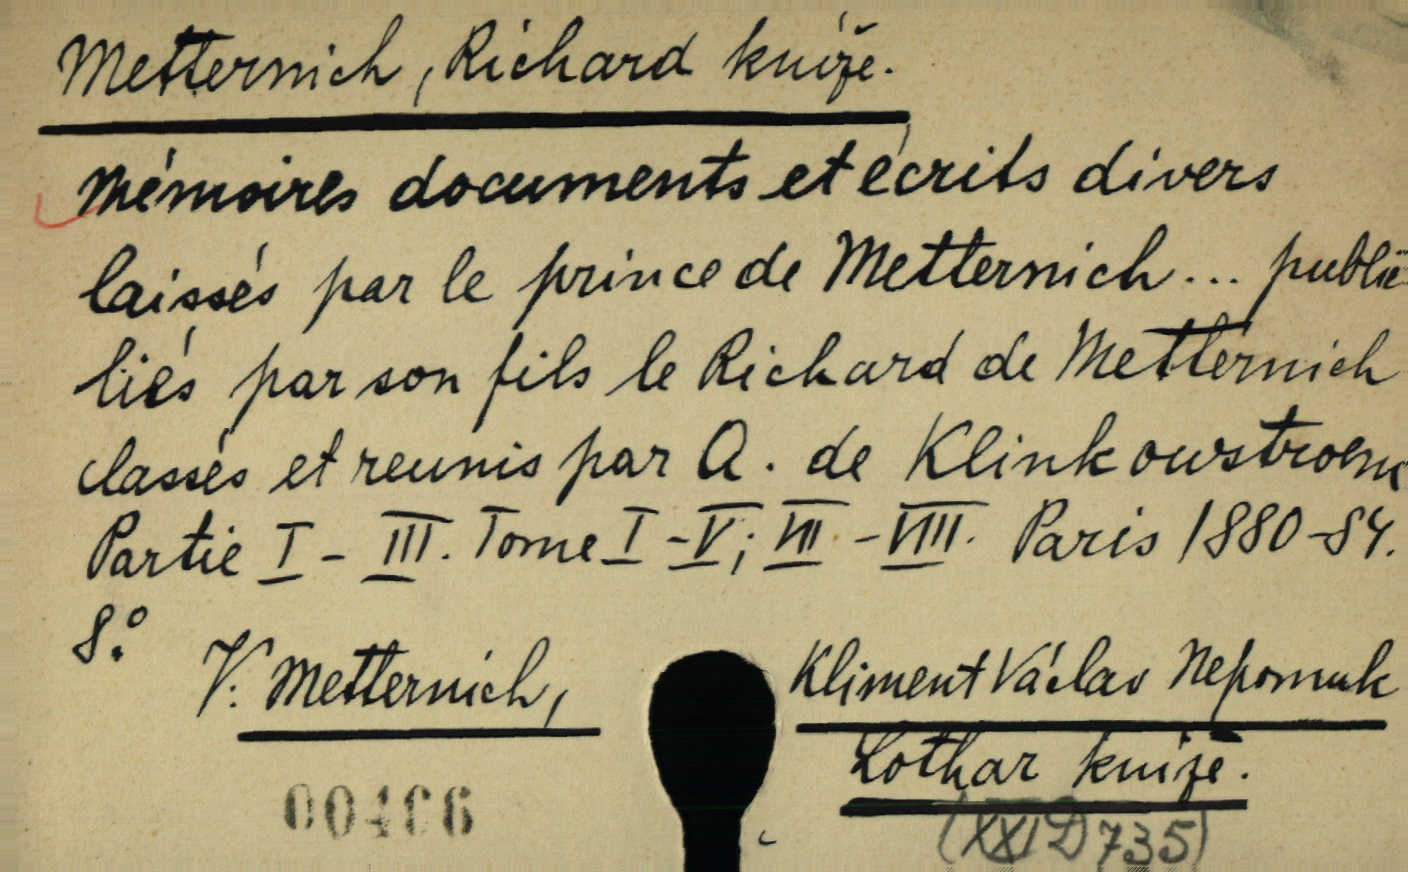 Metternich, Richard kníže.
Mémoires documents et écrits divers
laissés par le prince de Metternich... publié
liés par son fils le Richard de Metternich
classés et reunis par A. de Klinkowstroem
Partie I - III. Tome I - V; VII - VIII. Paris 1880-84.
8.°
V. Metternich, Kliment Václav Nepomuk
Lothar kníže.
(XXI D 735)